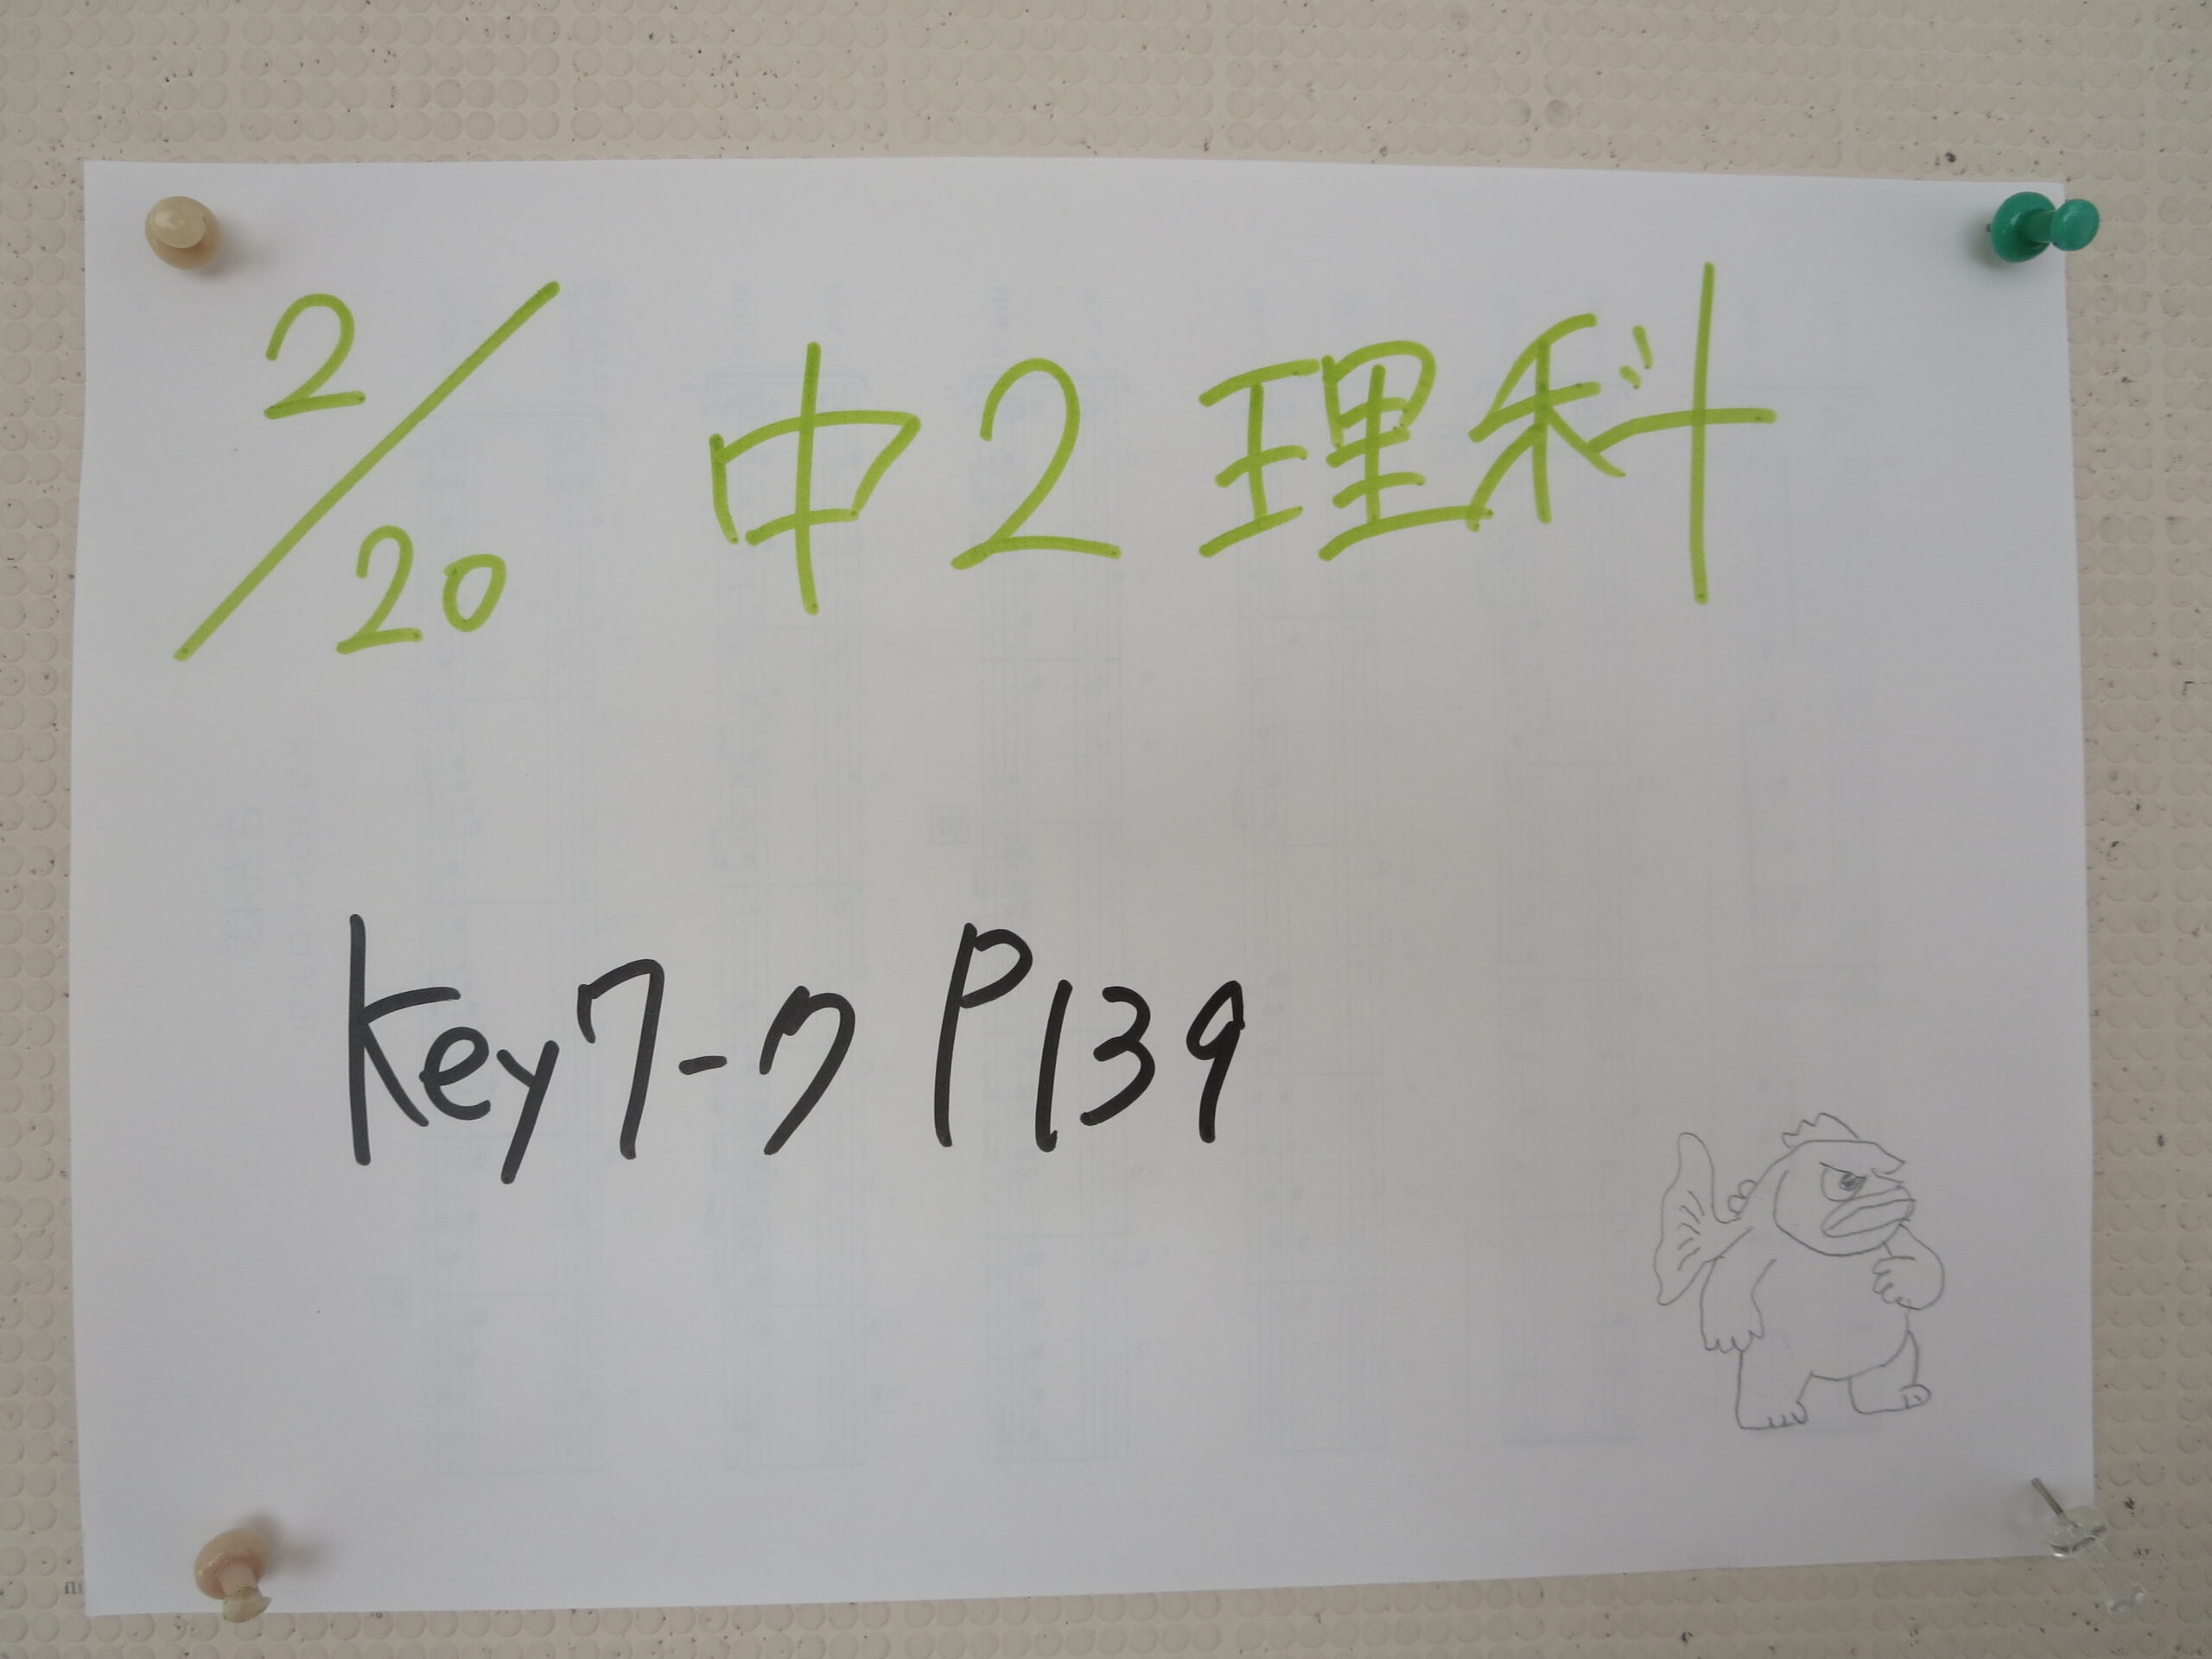 2/20 中2 理科
Key7-7 P139